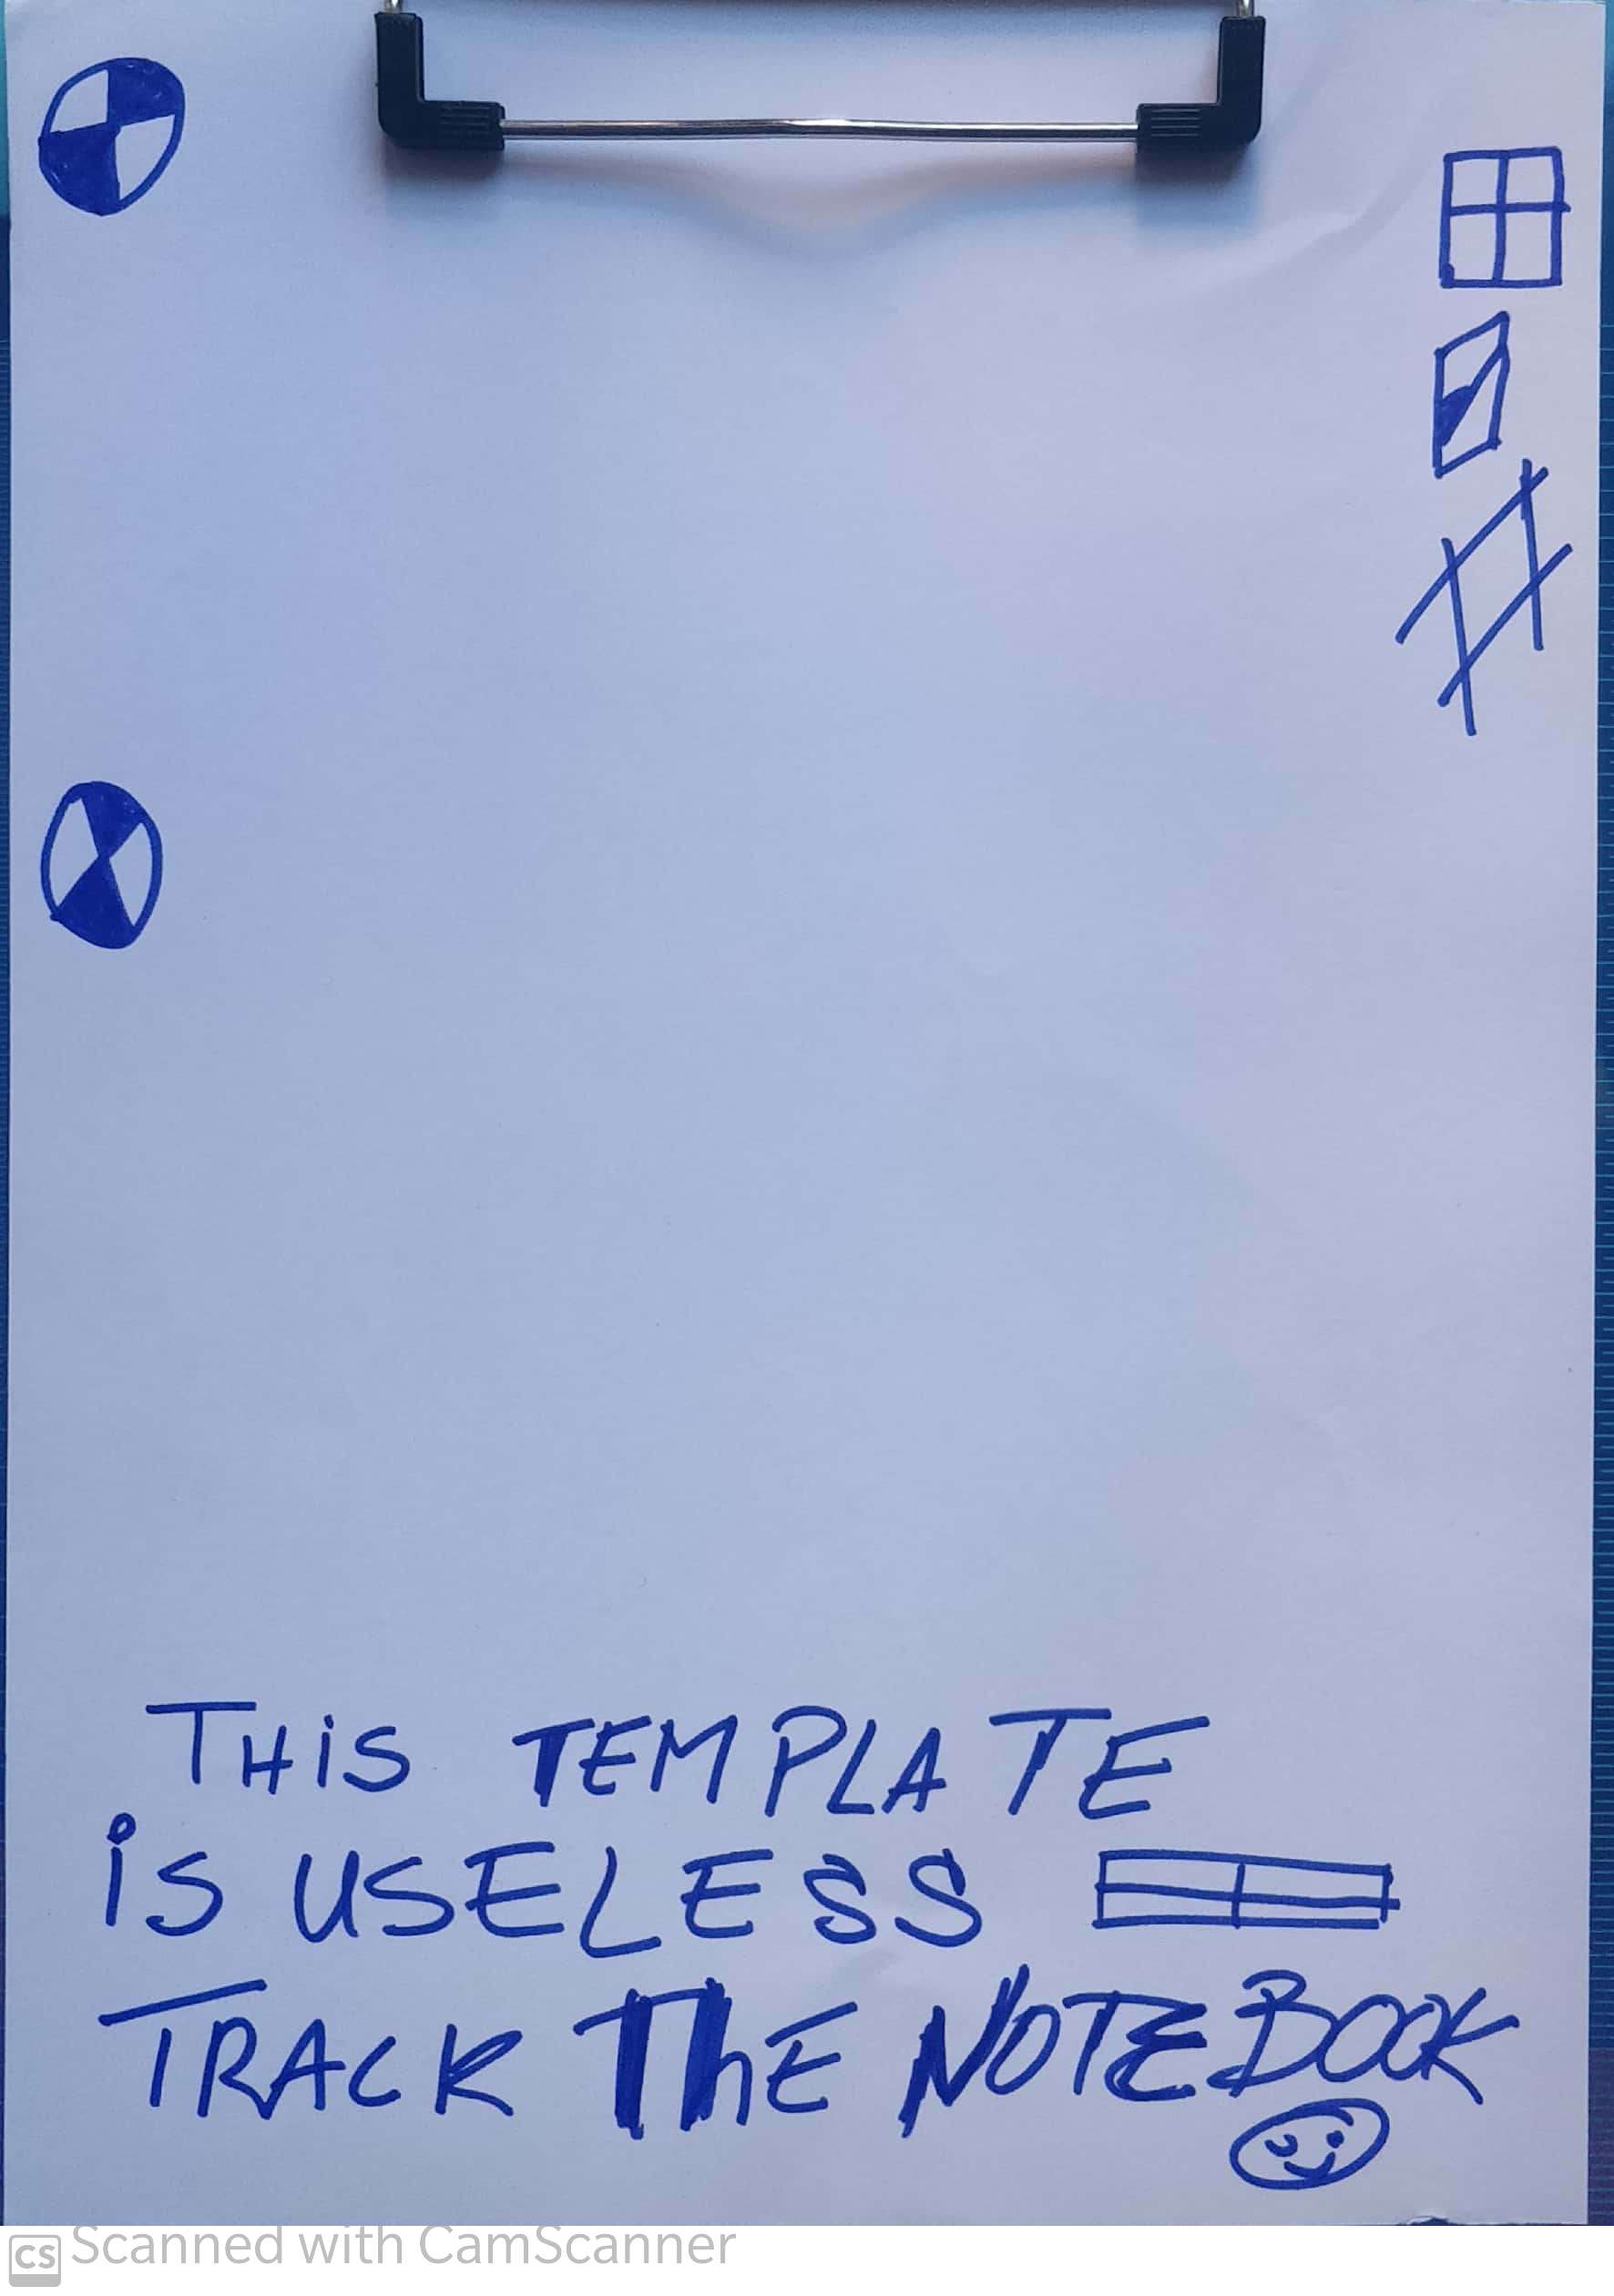 THiS TEMPLATE
iS USELESS
TRACK ThE NOTEBOOK
CS Scanned with CamScanner